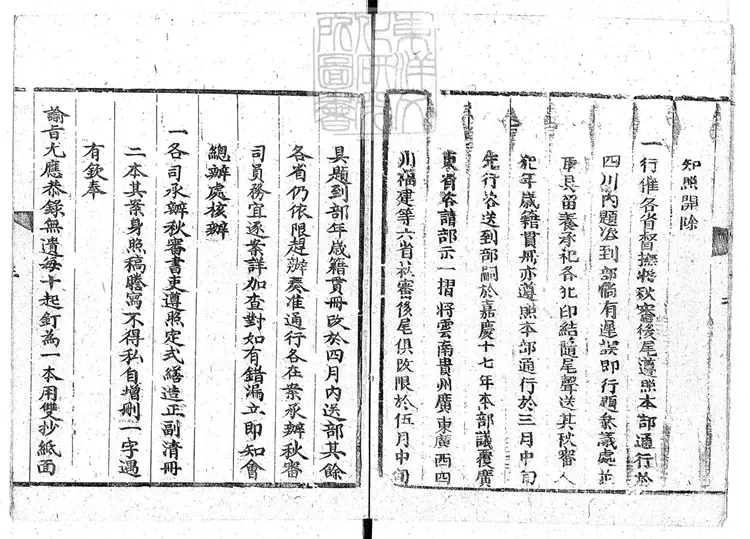 知照開除
一行催各省督撫將秋審後尾遵照本部通行於
四月內題咨到部倘有遲誤即行題叅議處並
取具留養承祀各犯印結隨尾聲送其秋審人
犯年歲籍貫冊亦遵照本部通行於三月中旬
先行咨送到部嗣於嘉慶十七年本部議覆廣
東省咨請部示一摺將雲南貴州廣東廣西四
川福建等六省秋審後尾俱改限於伍月中旬
具題到部年歲籍貫冊改於四月內送部其餘
各省仍依限趕辦奏准通行各在案承辦秋審
司員務宜逐案詳加查對如有錯漏立即知會
總辦處核辦
一各司承辦秋審書吏遵照定式繕造正副清冊
二本其案身照稿謄寫不得私自增刪一字遇
有欽奉
諭旨尤應恭錄無遺每十起釘為一本用雙抄紙面
二
三